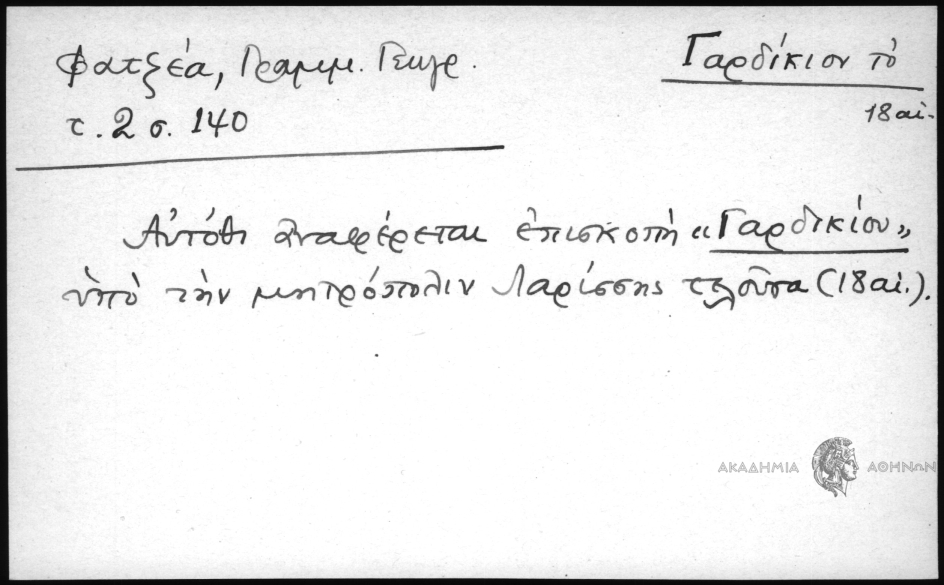 Φατζέα, Γραμμ. Γεωγρ.
τ. 2 σ. 140
Γαρδίκιον τὸ
18 αἰ.
Αὐτόθι ἀναφέρεται ἐπισκοπὴ «Γαρδικίου»
ὑπὸ τὴν μητρόπολιν Λαρίσσης τελοῦσα (18 αἰ.).
ΑΚΑΔΗΜΙΑ ΑΘΗΝΩΝ